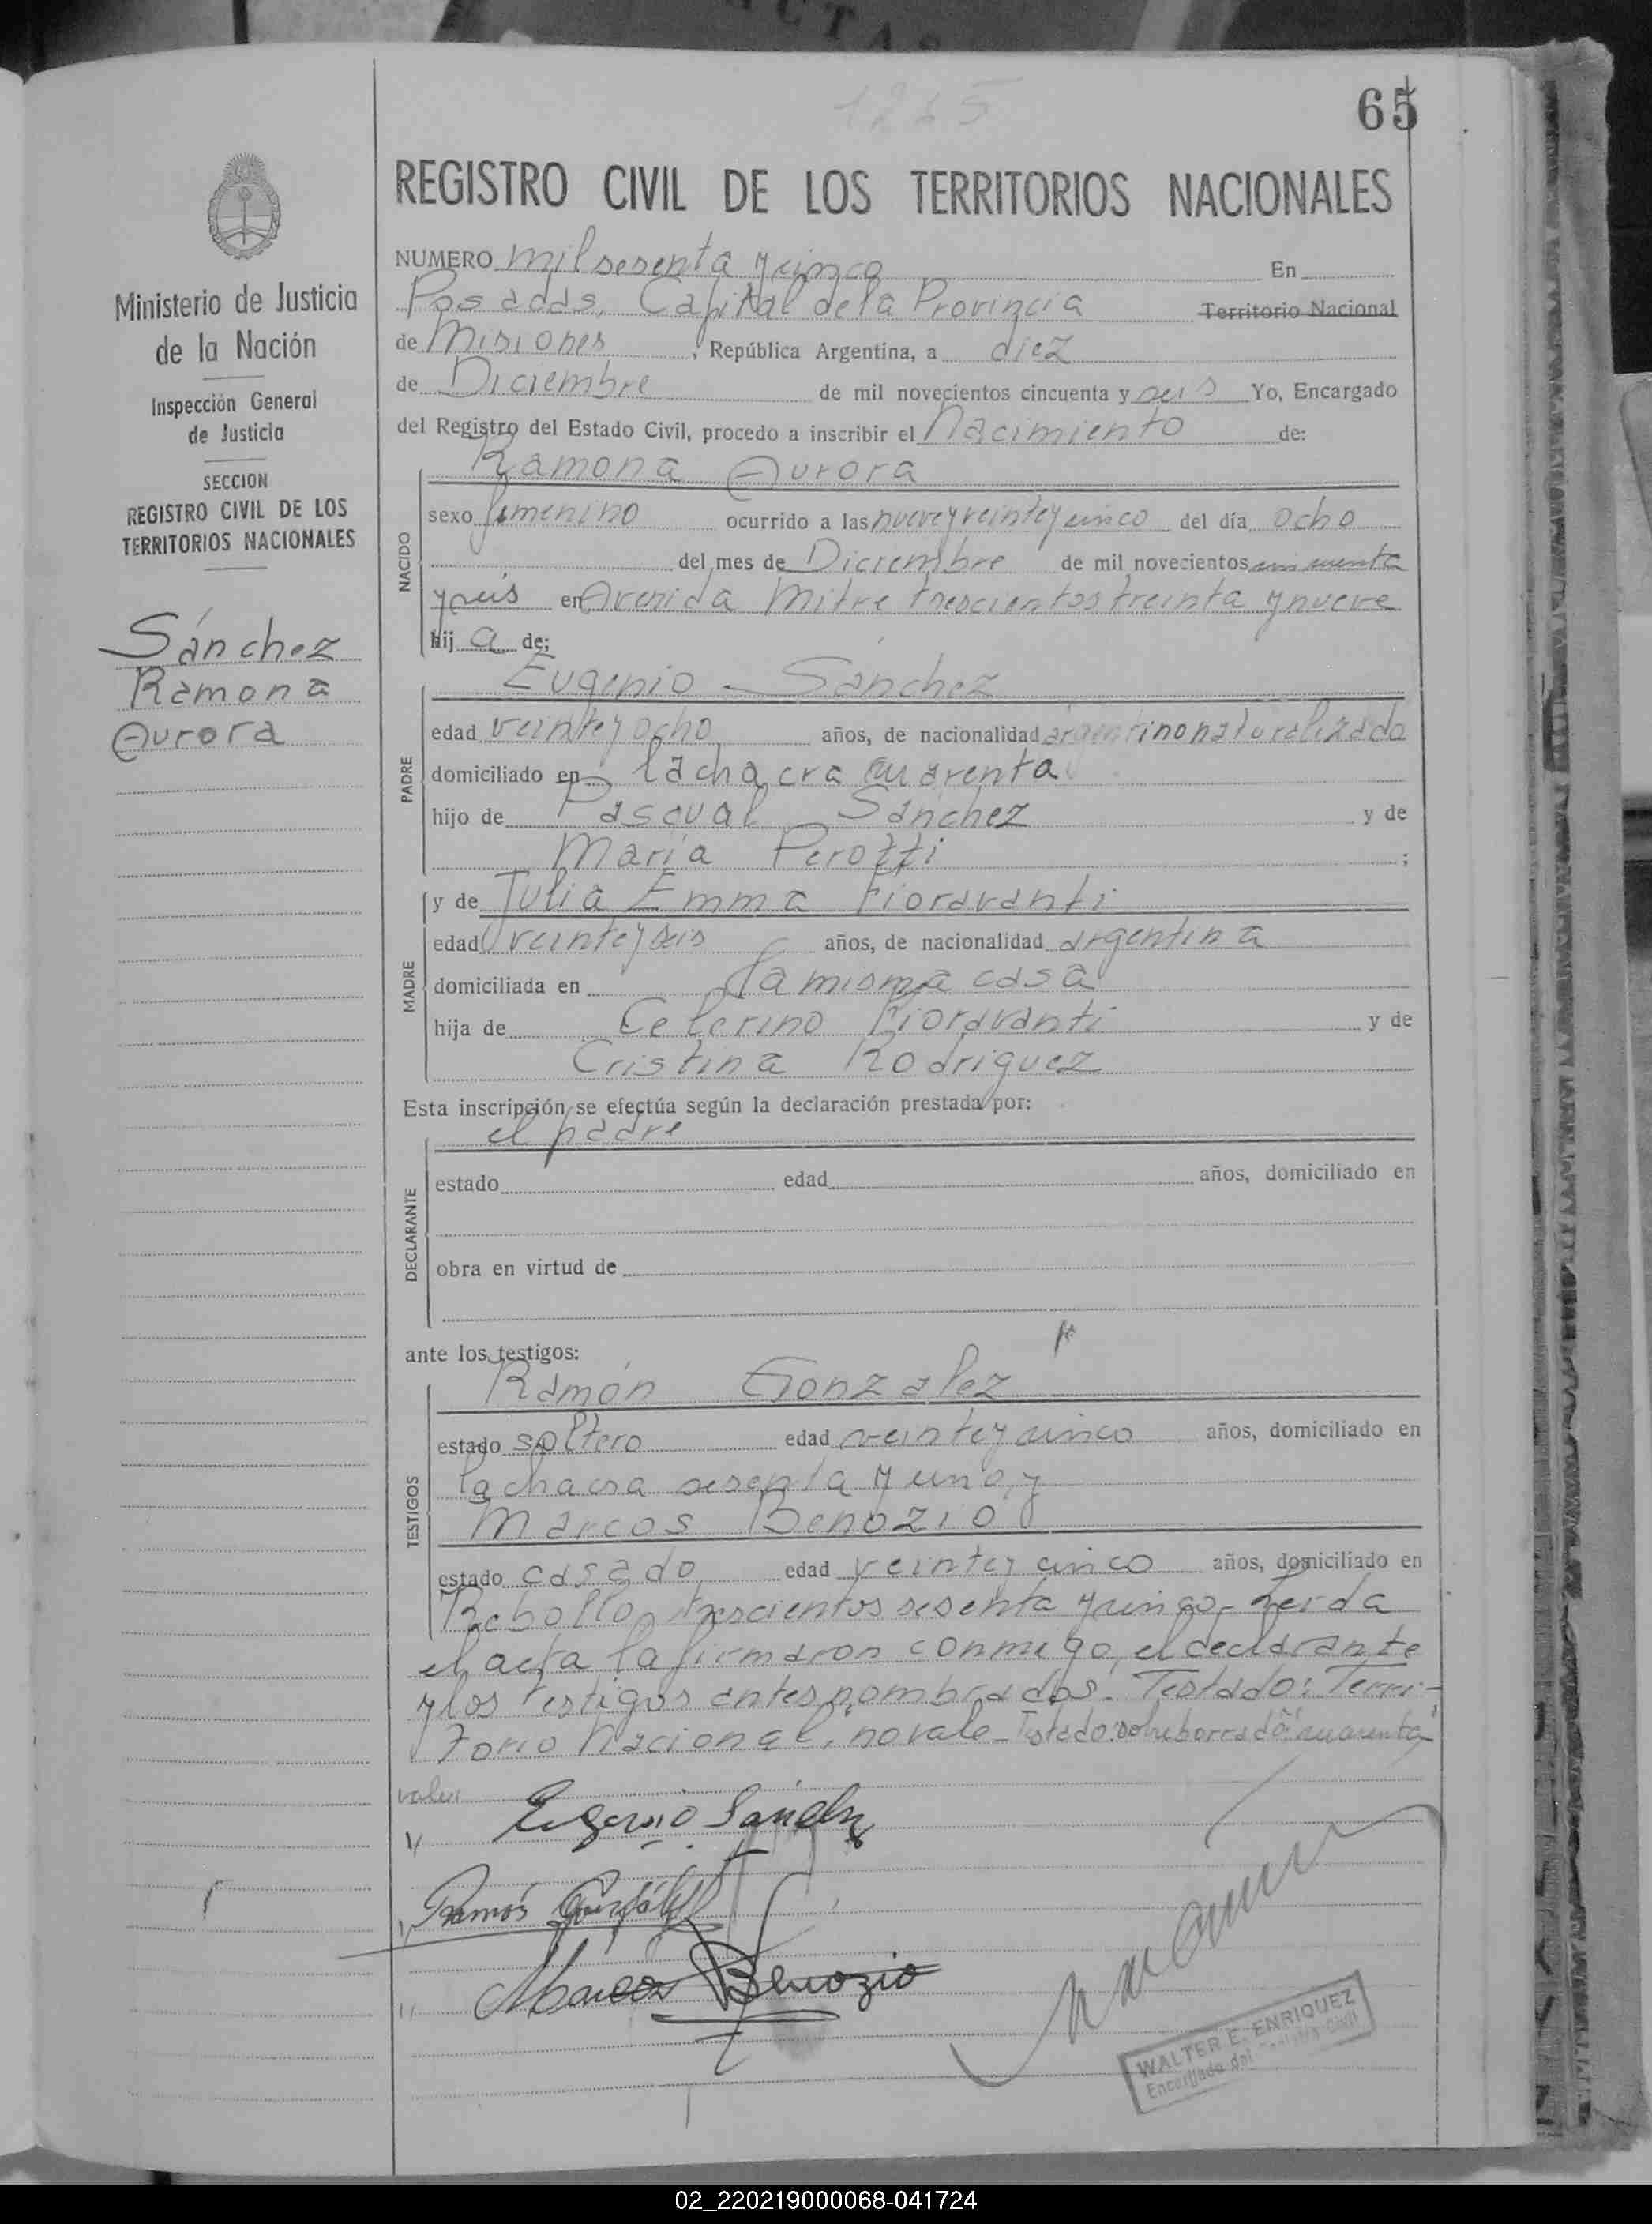 65
REGISTRO CIVIL DE LOS TERRITORIOS NACIONALES
Ministerio de Justicia
de la Nación
Inspección General
de Justicia
SECCION
REGISTRO CIVIL DE LOS
TERRITORIOS NACIONALES
Sánchez
Ramona
Aurora
NUMERO mil sesenta y cinco En
Posadas, Capital de la Provincia Territorio Nacional
de Misiones, República Argentina, a diez
de Diciembre de mil novecientos cincuenta y seis Yo, Encargado
del Registro del Estado Civil, procedo a inscribir el Nacimiento de:
Ramona Aurora
NACIDO
sexo femenino ocurrido a las nueve y veinte y cinco del día ocho
del mes de Diciembre de mil novecientos cincuenta
y seis en Avenida Mitre trescientos treinta y nueve
hij a de:
Eugenio Sánchez
PADRE
edad veinte y ocho años, de nacionalidad argentino naturalizado
domiciliado en la chacra cuarenta
hijo de Pascual Sánchez y de
María Perotti ;
y de Julia Emma Fioravanti
MADRE
edad veinte y seis años, de nacionalidad argentina
domiciliada en la misma casa
hija de Celerino Fioravanti y de
Cristina Rodriguez
Esta inscripción se efectúa según la declaración prestada por:
el padre
DECLARANTE
estado edad años, domiciliado en
obra en virtud de
ante los testigos:
Ramón Gonzalez
TESTIGOS
estado soltero edad veinte y cinco años, domiciliado en
la chacra sesenta y uno, y
Marcos Benozio
estado casado edad veinte y cinco años, domiciliado en
Rebollo trescientos sesenta y cinco - Leida
el acta la firmaron conmigo, el declarante
y los testigos antes nombrados - Testado: Terri-
torio Nacional, no vale - Testado: sobre borrado "cuarenta"
vale
Eugenio Sánchez
Ramón González
Marcos Benozio
WALTER E. ENRIQUEZ
Encargado del Registro Civil
02_220219000068-041724